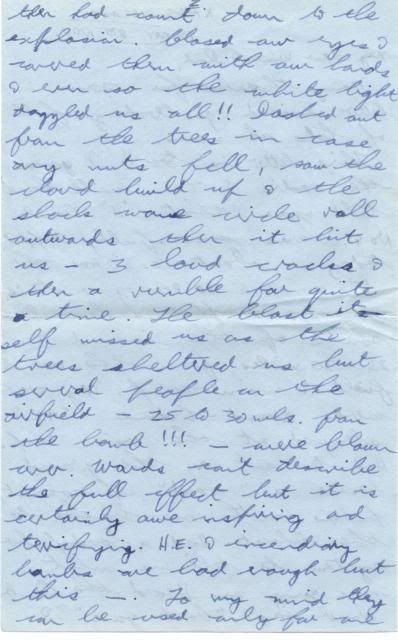 2
then had count down to the
explosion. Closed our eyes &
covered them with our hands
& even so the white light
dazzled us all!! Dashed out
from the trees in case
any nuts fell, saw the
cloud build up & the
shock wave circle roll
outwards then it hit
us - 3 loud cracks &
then a rumble for quite
a time. The blast it-
self missed us as the
trees sheltered us but
several people on the
airfield - 25 to 30 mls. from
the bomb!!! - were blown
over. Words can't describe
the full effect but it is
certainly awe inspiring and
terrifying. H.E. & incendiary
bombs are bad enough but
this -. To my mind they
can be used only for one